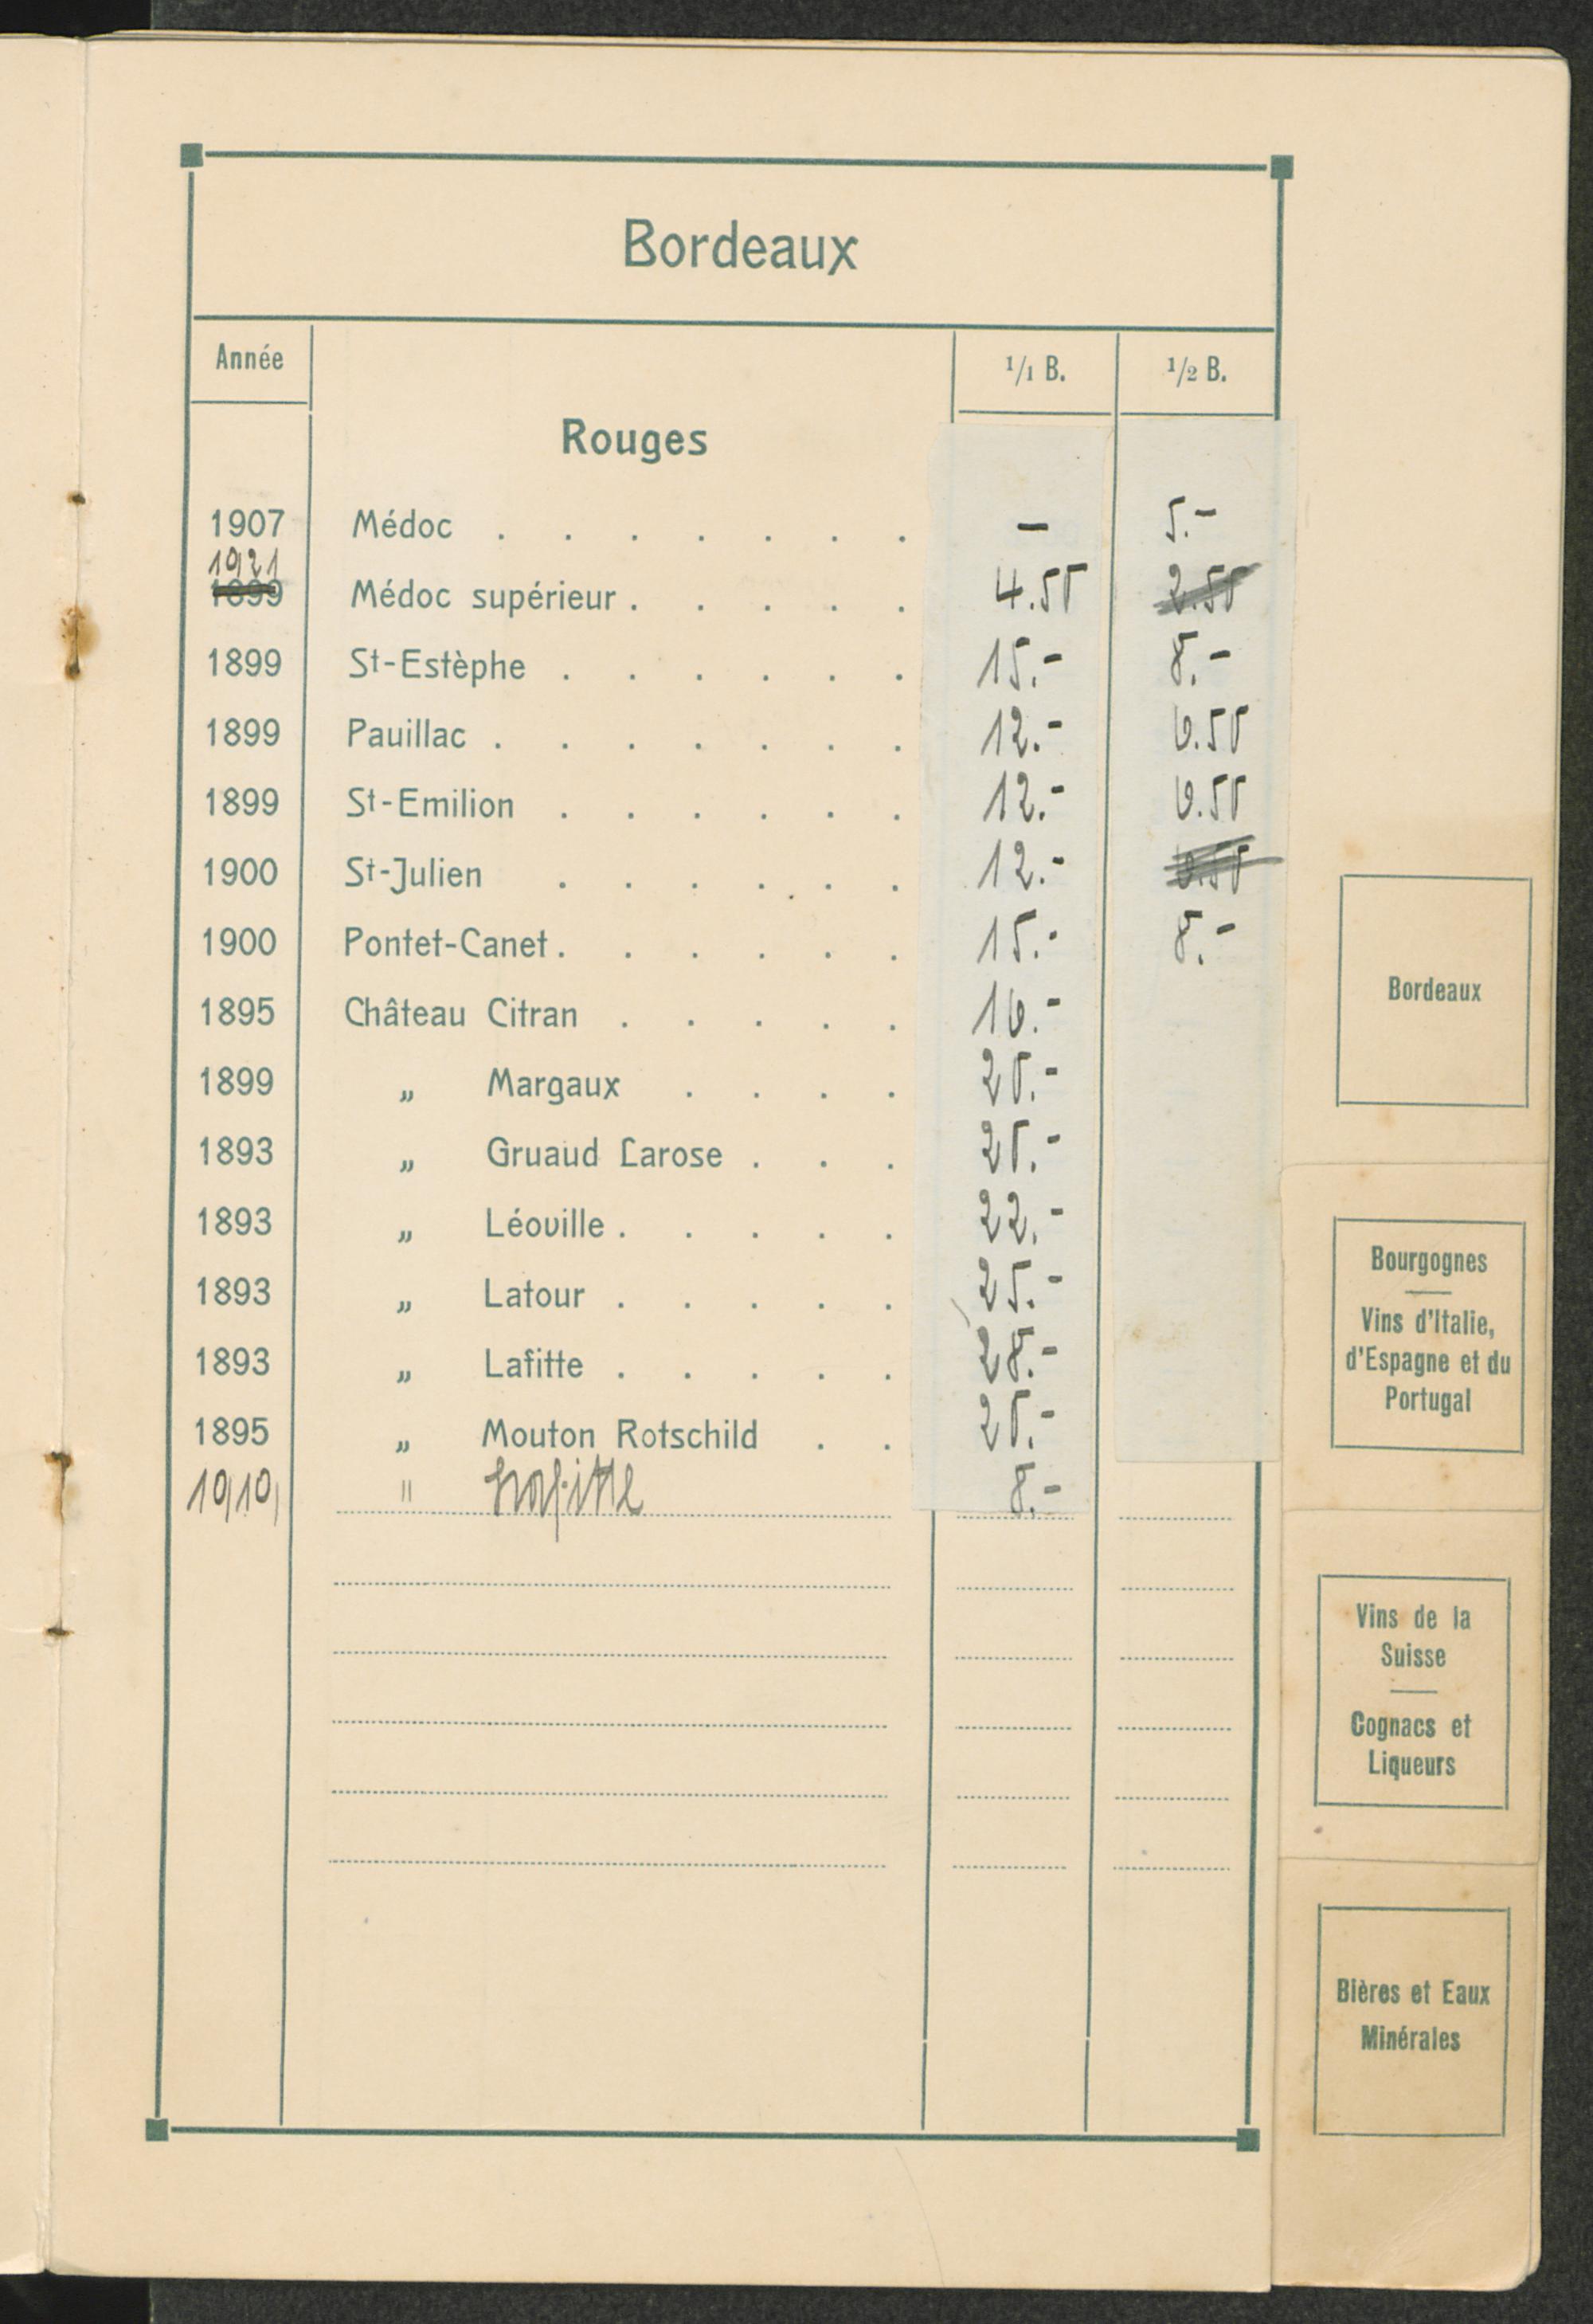 Bordeaux
Année 1/1 B. 1/2 B.
Rouges
1907 Médoc . . . . . . . – 5.-
1921
1899 Médoc supérieur . . . . . 4.50 2.50
1899 St-Estèphe . . . . . . 15.- 8.-
1899 Pauillac . . . . . . . 12.- 6.50
1899 St-Emilion . . . . . . 12.- 6.50
1900 St-Julien . . . . . . 12.- 6.50
1900 Pontet-Canet . . . . . . 15.- 8.-
1895 Château Citran . . . . . 16.-
1899 „ Margaux . . . .
1893 „ Gruaud Larose . . .
1893 „ Léoville . . . . . 22.-
1893 „ Latour . . . . . 25.-
1893 „ Lafitte . . . . . 28.-
1895 „ Mouton Rotschild . .
1919 " Lafitte 8.-
Bordeaux
Bourgognes
Vins d'Italie,
d'Espagne et du
Portugal
Vins de la
Suisse
Cognacs et
Liqueurs
Bières et Eaux
Minérales